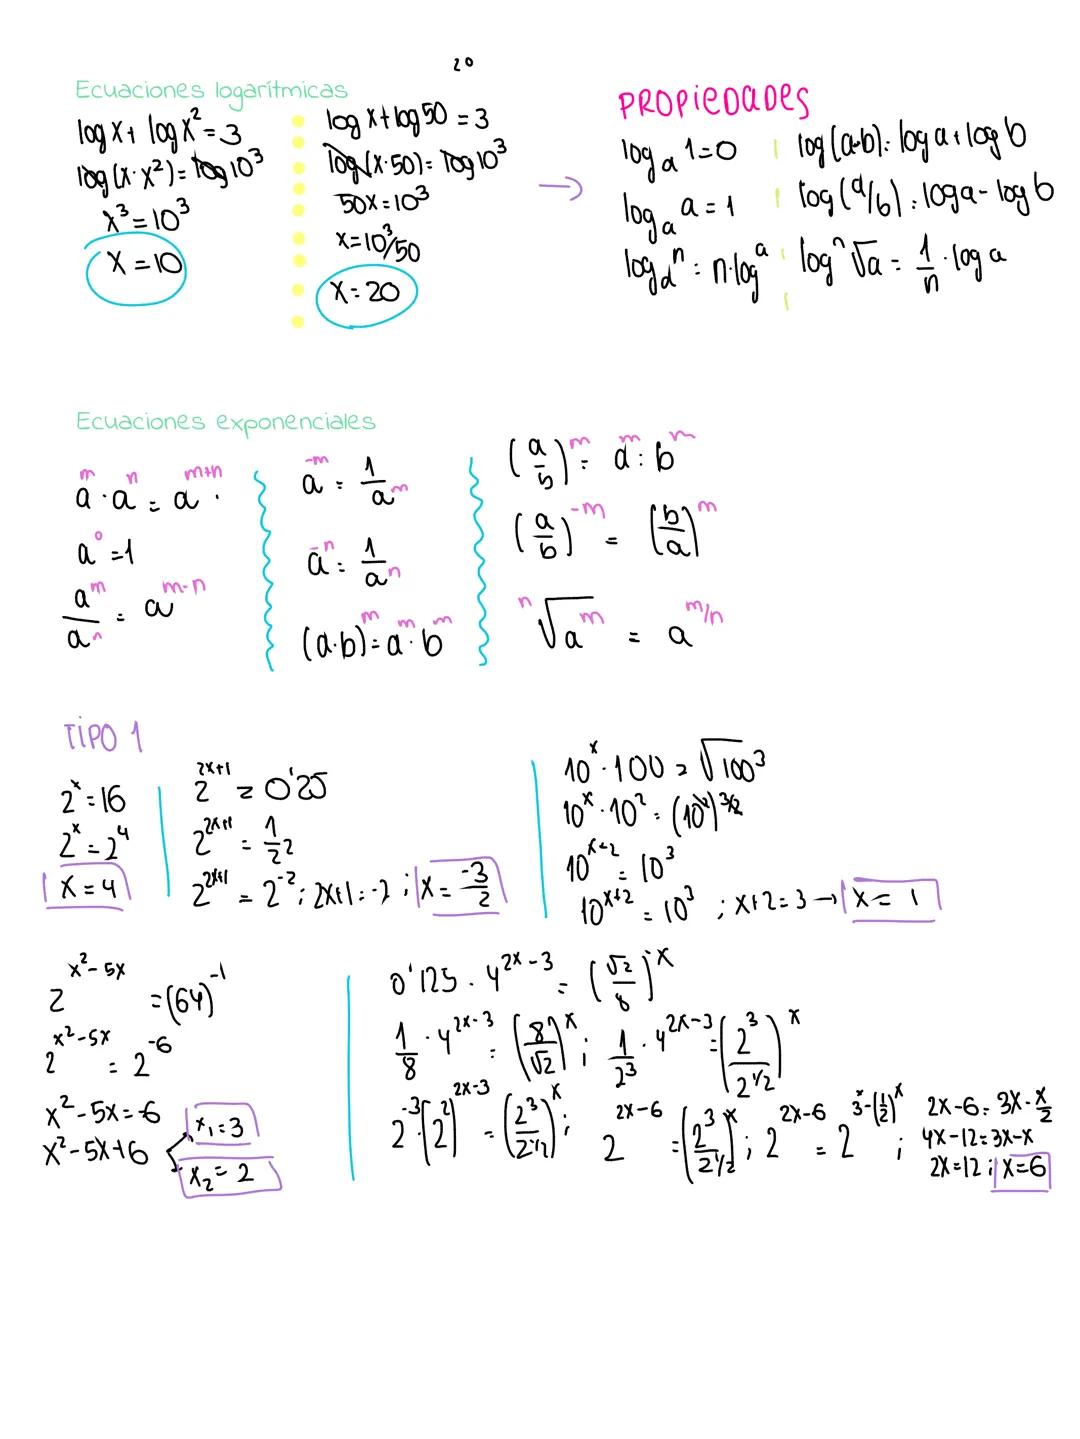 20
Ecuaciones logarítmicas
log x + log x² = 3
log (x · x²) = log 10³
x³ = 10³
x = 10
log x + log 50 = 3
log (x · 50) = log 10³
50x = 10³
x = 10³/50
x = 20
→
PROPiEDADES
logₐ 1 = 0
logₐ a = 1
log aⁿ = n · log a
log (a·b) = log a + log b
log (a/b) = log a - log b
log ⁿ√a = 1/n · log a
Ecuaciones exponenciales
a^m · a^n = a^(m+n) .
a⁰ = 1
a^m / a^n = a^(m-n)
a^(-m) = 1/a^m
a^(-n) = 1/a^n
(a·b)^m = a^m · b^m
(a/b)^m = a^m : b^m
(a/b)^(-m) = (b/a)^m
ⁿ√a^m = a^(m/n)
TiPO 1
2^x = 16
2^x = 2⁴
x = 4
2^(2x+1) = 0'25
2^(2x+1) = 1/2²
2^(2x+1) = 2^(-2) ; 2x+1 = -2 ; x = -3/2
10^x · 100 = √100³
10^x · 10² = (10²)^(3/2)
10^(x+2) = 10³
10^(x+2) = 10³ ; x+2 = 3 → x = 1
2^(x²-5x) = (64)^(-1)
2^(x²-5x) = 2^(-6)
x² - 5x = -6
x² - 5x + 6
x₁ = 3
x₂ = 2
0'125 · 4^(2x-3) = (√2/8)^(-x)
1/8 · 4^(2x-3) = (8/√2)^x ; 1/2³ · 4^(2x-3) = (2³/2^(1/2))^x
2^(-3) (2²)^(2x-3) = (2³/2^(1/2))^x ; 2^(2x-6) = (2³/2^(1/2))^x ; 2^(2x-6) = 2^(3^x-(1/2)^x) ;
2x-6 = 3x - x/2
4x - 12 = 3x - x
2x = 12 ; x = 6